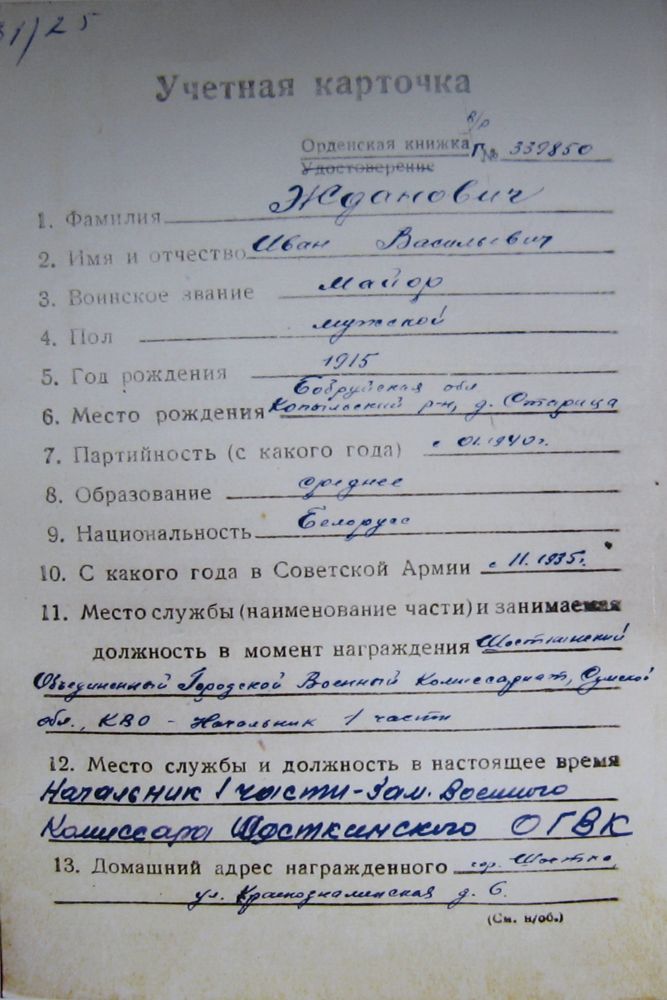 31/25
Учетная карточка
в/р
Орденская книжка Г№ 339850
Удостоверение
1. Фамилия Жданович
2. Имя и отчество Иван Васильевич
3. Воинское звание Майор
4. Пол мужской
5. Год рождения 1915
Бобруйская обл
6. Место рождения Копыльский р-н, д. Старица
7. Партийность (с какого года) с 01.1940г.
8. Образование среднее
9. Национальность Белорус
10. С какого года в Советской Армии с 11.1935г.
11. Место службы (наименование части) и занимаемая
должность в момент награждения Шосткинский
Объединенный Городской Военный Комиссариат, Сумской
обл., КВО - Начальник 1 части
12. Место службы и должность в настоящее время
Начальник 1 части-Зам. Военного
Комиссара Шосткинского ОГВК
13. Домашний адрес награжденного гор. Шостка,
ул. Краснознаменская д. 6.
(См. н/об.)